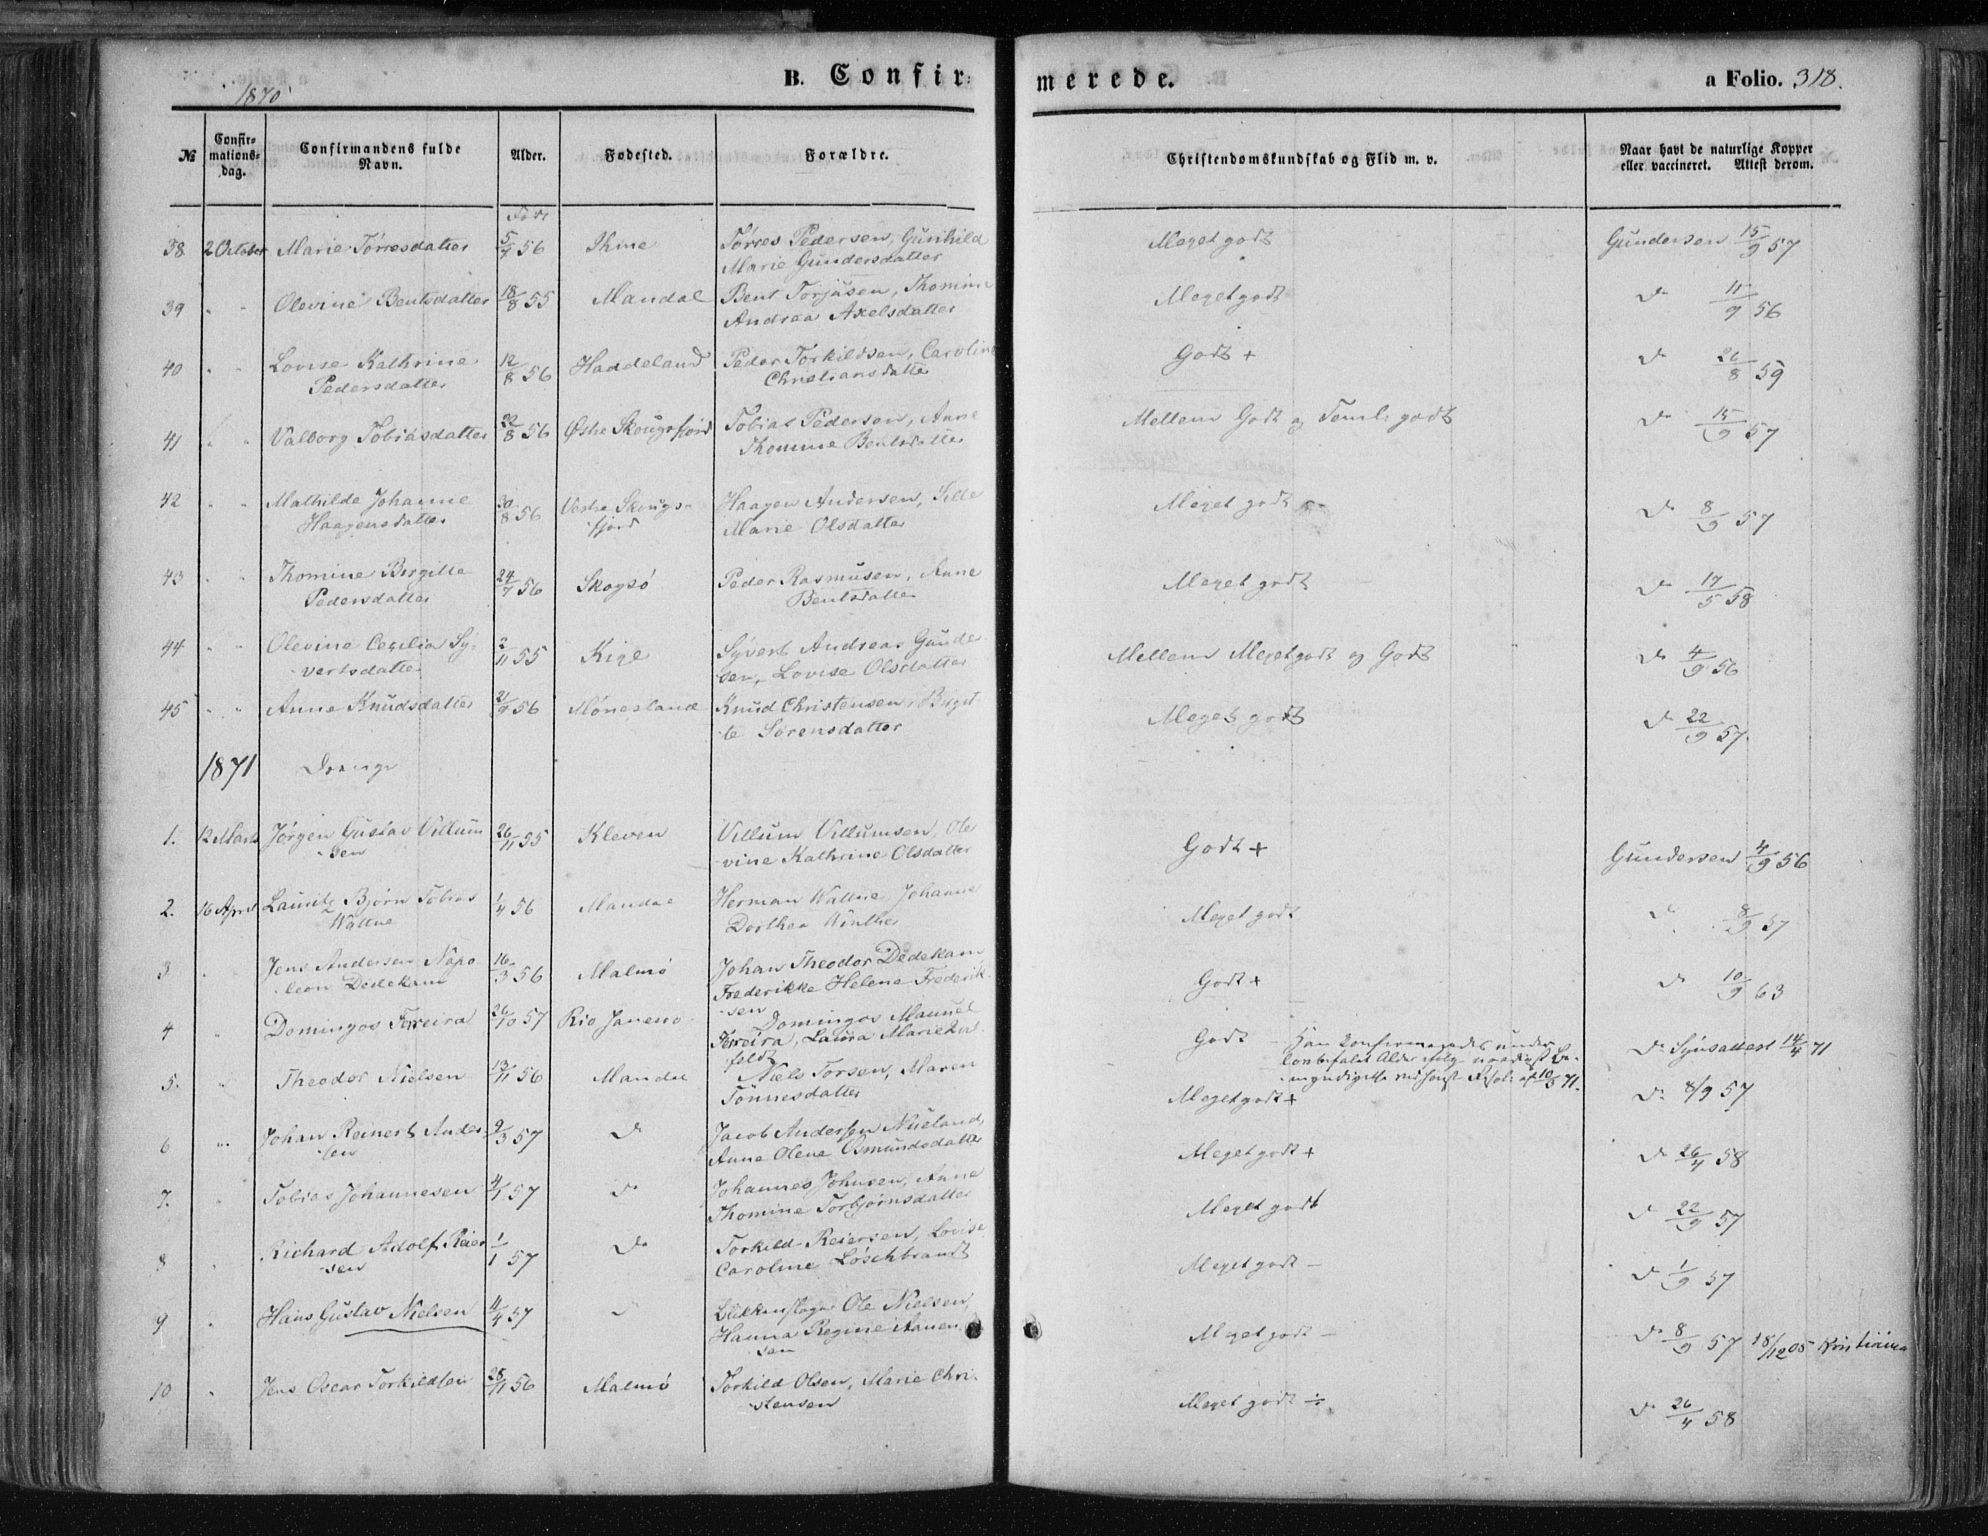 B. Confirmerede.
a Folio. 318.
1870
№ Confirmationsdag. Confirmandens fulde Navn. Alder. Fødested. Forældre. Christendomskundskab og Flid m. v. Naar havt de naturlige Kopper eller vaccineret. Attest derom.
38 2 October Marie Tørresdatter 5/7 56 Ihme Tørres Pedersen, Gunhild Meget godt Gundersen 15/9 57
Marie Gundersdatter
39 " " Olevine Bentsdatter 18/8 55 Mandal Bent Torjusen, Thomine Meget godt Do 11/9 56
Andrea Axelsdatter
40 " " Lovise Kathrine 12/8 56 Haddeland Peder Torkildsen, Caroline Godt + Do 26/8 59
Pedersdatter Christiansdatter
41 " " Valborg Tobiasdatter 22/8 56 Østre Skougsfjord Tobias Pedersen, Anne Mellem Godt og Teml. godt Do 15/9 57
Thomine Bentsdatter
42 " " Mathilde Johanne 30/8 56 Vestre Skougs- Haagen Andersen, Sille Meget godt Do 8/9 57
Haagensdatter fjord Marie Olsdatter
43 " " Thomine Birgitte 24/7 56 Skogsø Peder Rasmusen, Anne Meget godt Do 17/5 58
Pedersdatter Bentsdatter
44 " " Olevine Cecilia Sy- 2/11 55 Kige Syvert Andreas Gunder Mellem Meget godt og Godt Do 4/9 56
vertsdatter sen, Lovise Olsdatter
45 " " Anne Knudsdatter 21/9 56 Mønesland Knud Christensen, Birgit Meget godt Do 22/9 57
te Sørensdatter
1871 Drenge
1. 12 Marts Jørgen Gustav Villum 26/11 55 Kleven Villum Villumsen, Ole Godt + Gundersen 4/9 56
sen vine Kathrine Olsdatter
2. 16 April Lauritz Bjørn Tobias 1/4 56 Mandal Herman Wattne Johanne Meget godt Do 8/9 57
Wattne Dorthea Winther
3 " Jens Andersen Napo 16/3 56 Malmø Johan Theodor Dedekam Godt + Do 10/9 63
leon Dedekam Frederikke Helene Frederik
sen
4 " Domingos Ferreira 26/10 57 Rio Janeiro Domingos Manuel Godt - Han konfirmeredes under Do Synsattest 14/4 71
Ferreira, Laura Marie
feldt
5. " Theodor Nielsen 13/11 56 Mandal Niels Torsen, Maren Meget godt + Do 8/9 57
Tønnesdatter
6 " Johan Reinert Ander 9/3 57 Do Jacob Andersen Nueland, Meget godt + Do 26/4 58
sen Anne Olene Osmundsdatter
7. " Tobias Johannesen 4/1 57 Do Johannes Johnsen, Anne Meget godt Do 22/9 57
Thomine Torbjørnsdatter
8 " Richard Adolf Reier 1/1 57 Do Torkild Reiersen, Lovise Meget godt - Do 1/9 57
sen Caroline Løschbrandt
9 " Hans Gustav Nielsen 11/4 57 Do Blikkenslager Ole Nielsen, Meget godt - Do 8/9 57 18/12 05 Kristiania
Hanna Regine Aanen
sen
10 " Jens Oscar Torkildsen 28/11 56 Malmø Torkild Olsen, Marie Chri- Meget godt ÷ Do 26/4 58
stensen